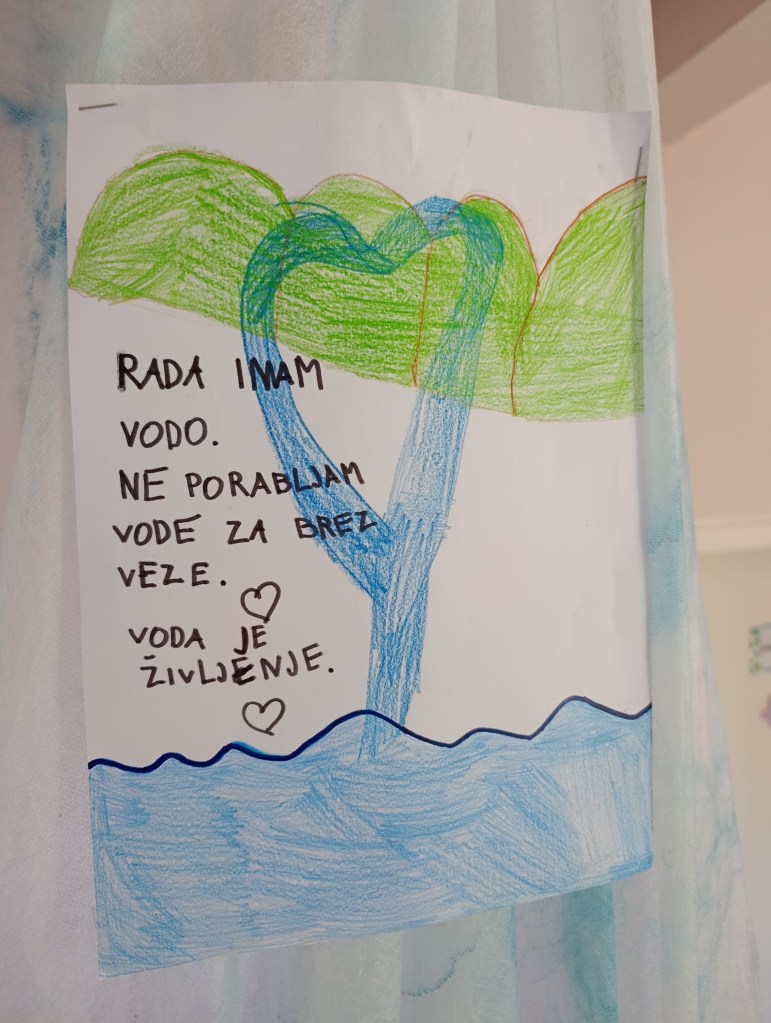 RADA IMAM
VODO.
NE PORABLJAM
VODE ZA BREZ
VEZE.
VODA JE
ŽIVLJENJE.